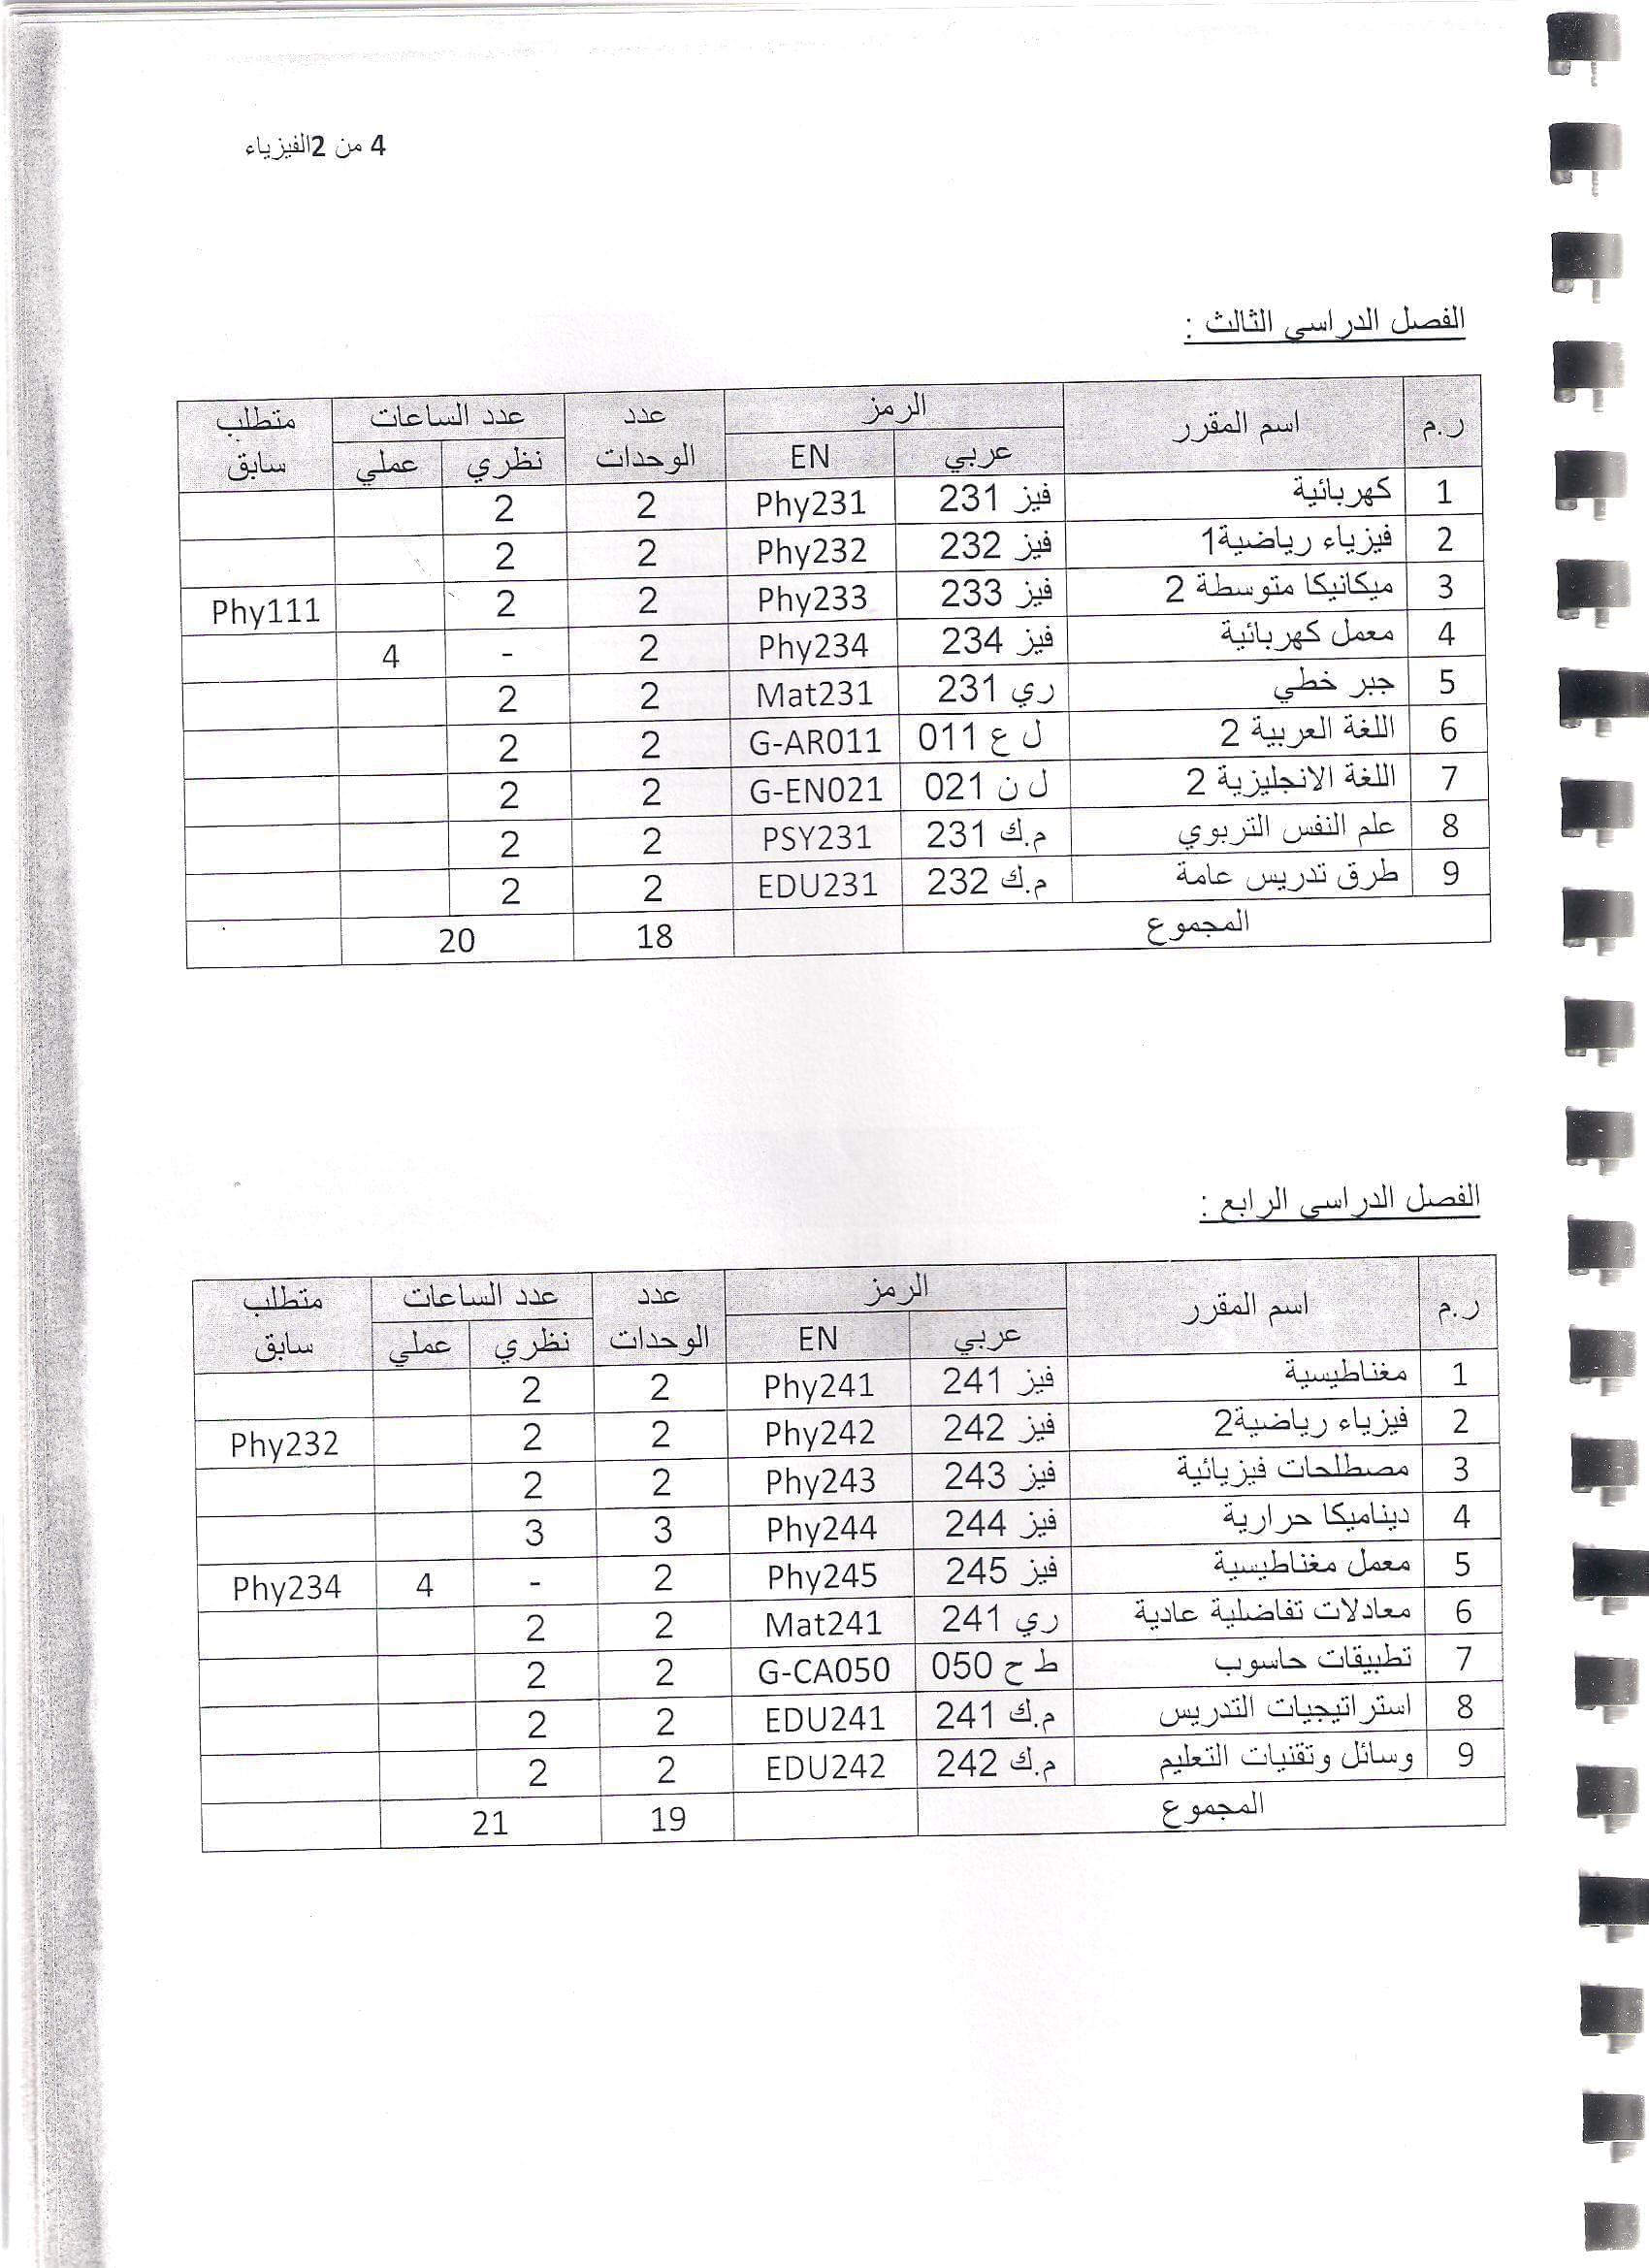 4 من 2الفيزياء
الفصل الدراسي الثالث :
ر.م اسم المقرر الرمز عدد الوحدات عدد الساعات متطلب سابق
عربي EN نظري عملي
1 كهربائية فيز 231 Phy231 2 2
2 فيزياء رياضية1 فيز 232 Phy232 2 2
3 ميكانيكا متوسطة 2 فيز 233 Phy233 2 2 Phy111
4 معمل كهربائية فيز 234 Phy234 2 - 4
5 جبر خطي ري 231 Mat231 2 2
6 اللغة العربية 2 ل ع 011 G-AR011 2 2
7 اللغة الانجليزية 2 ل ن 021 G-EN021 2 2
8 علم النفس التربوي م.ك 231 PSY231 2 2
9 طرق تدريس عامة م.ك 232 EDU231 2 2
المجموع 18 20
الفصل الدراسي الرابع :
ر.م اسم المقرر الرمز عدد الوحدات عدد الساعات متطلب سابق
عربي EN نظري عملي
1 مغناطيسية فيز 241 Phy241 2 2
2 فيزياء رياضية2 فيز 242 Phy242 2 2 Phy232
3 مصطلحات فيزيائية فيز 243 Phy243 2 2
4 ديناميكا حرارية فيز 244 Phy244 3 3
5 معمل مغناطيسية فيز 245 Phy245 2 - 4 Phy234
6 معادلات تفاضلية عادية ري 241 Mat241 2 2
7 تطبيقات حاسوب ط ح 050 G-CA050 2 2
8 استراتيجيات التدريس م.ك 241 EDU241 2 2
9 وسائل وتقنيات التعليم م.ك 242 EDU242 2 2
المجموع 19 21